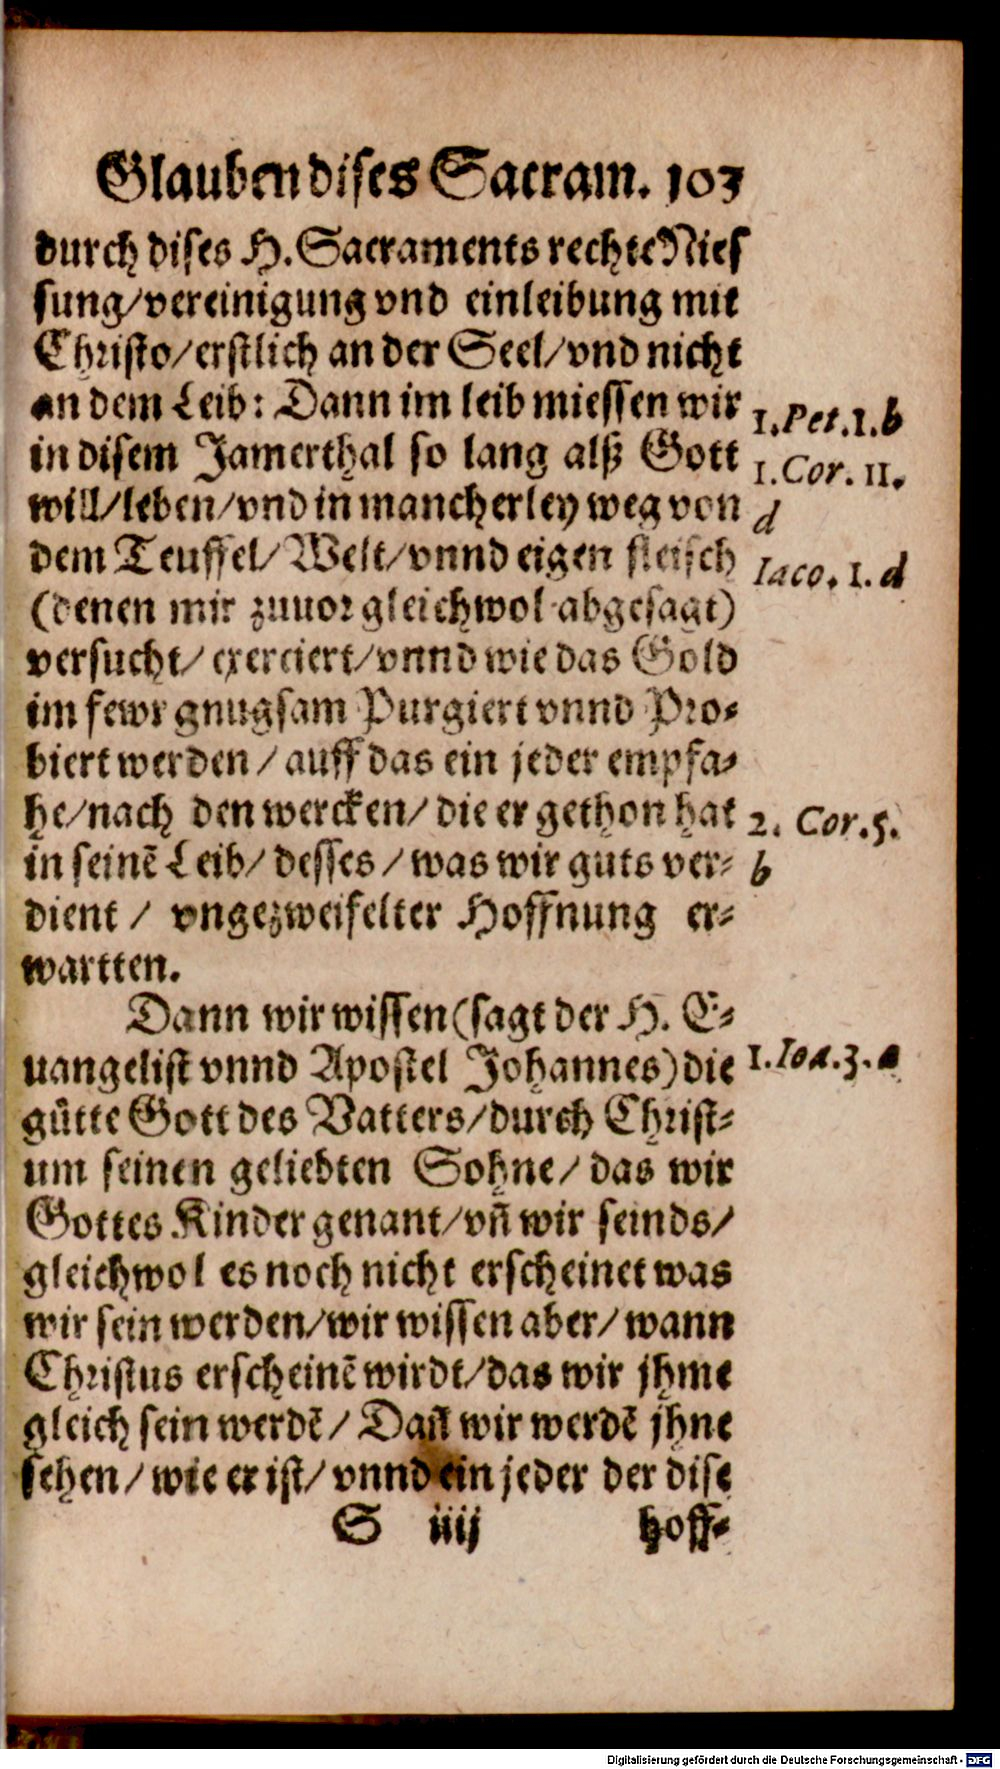 Glauben dises Sacram. 103
durch dises H. Sacraments rechte Nies
sung/vereinigung vnd einleibung mit
Christo/erstlich an der Seel/vnd nicht
an dem Leib: Dann im leib miessen wir
1.Pet.1.b
in disem Jamerthal so lang alß Gott
1.Cor.11.
will/leben/vnd in mancherley weg von
d
dem Teuffel/Welt/vnnd eigen fleisch
Iaco.1.d
(denen mir zuuor gleichwol abgesagt)
versucht/exerciert/vnnd wie das Gold
im fewr gnugsam Purgiert vnnd Pro⸗
biert werden/auff das ein jeder empfa⸗
he/nach den wercken/die er gethon hat
2. Cor.5.
in seinẽ Leib/desses/was wir guts ver⸗
b
dient/ vngezweifelter Hoffnung er⸗
wartten.
Dann wir wissen(sagt der H. E⸗
uangelist vnnd Apostel Johannes)die
1.Ioa.3.a
gůtte Gott des Vatters/durch Christ⸗
um seinen geliebten Sohne/das wir
Gottes Kinder genant/vñ wir seinds/
gleichwol es noch nicht erscheinet was
wir sein werden/wir wissen aber/wann
Christus erscheinẽ wirdt/das wir jhme
gleich sein werdẽ/Dañ wir werdẽ jhne
sehen/wie er ist/vnnd ein jeder der dise
S iiij hoff⸗
Digitalisierung gefördert durch die Deutsche Forschungsgemeinschaft - DFG